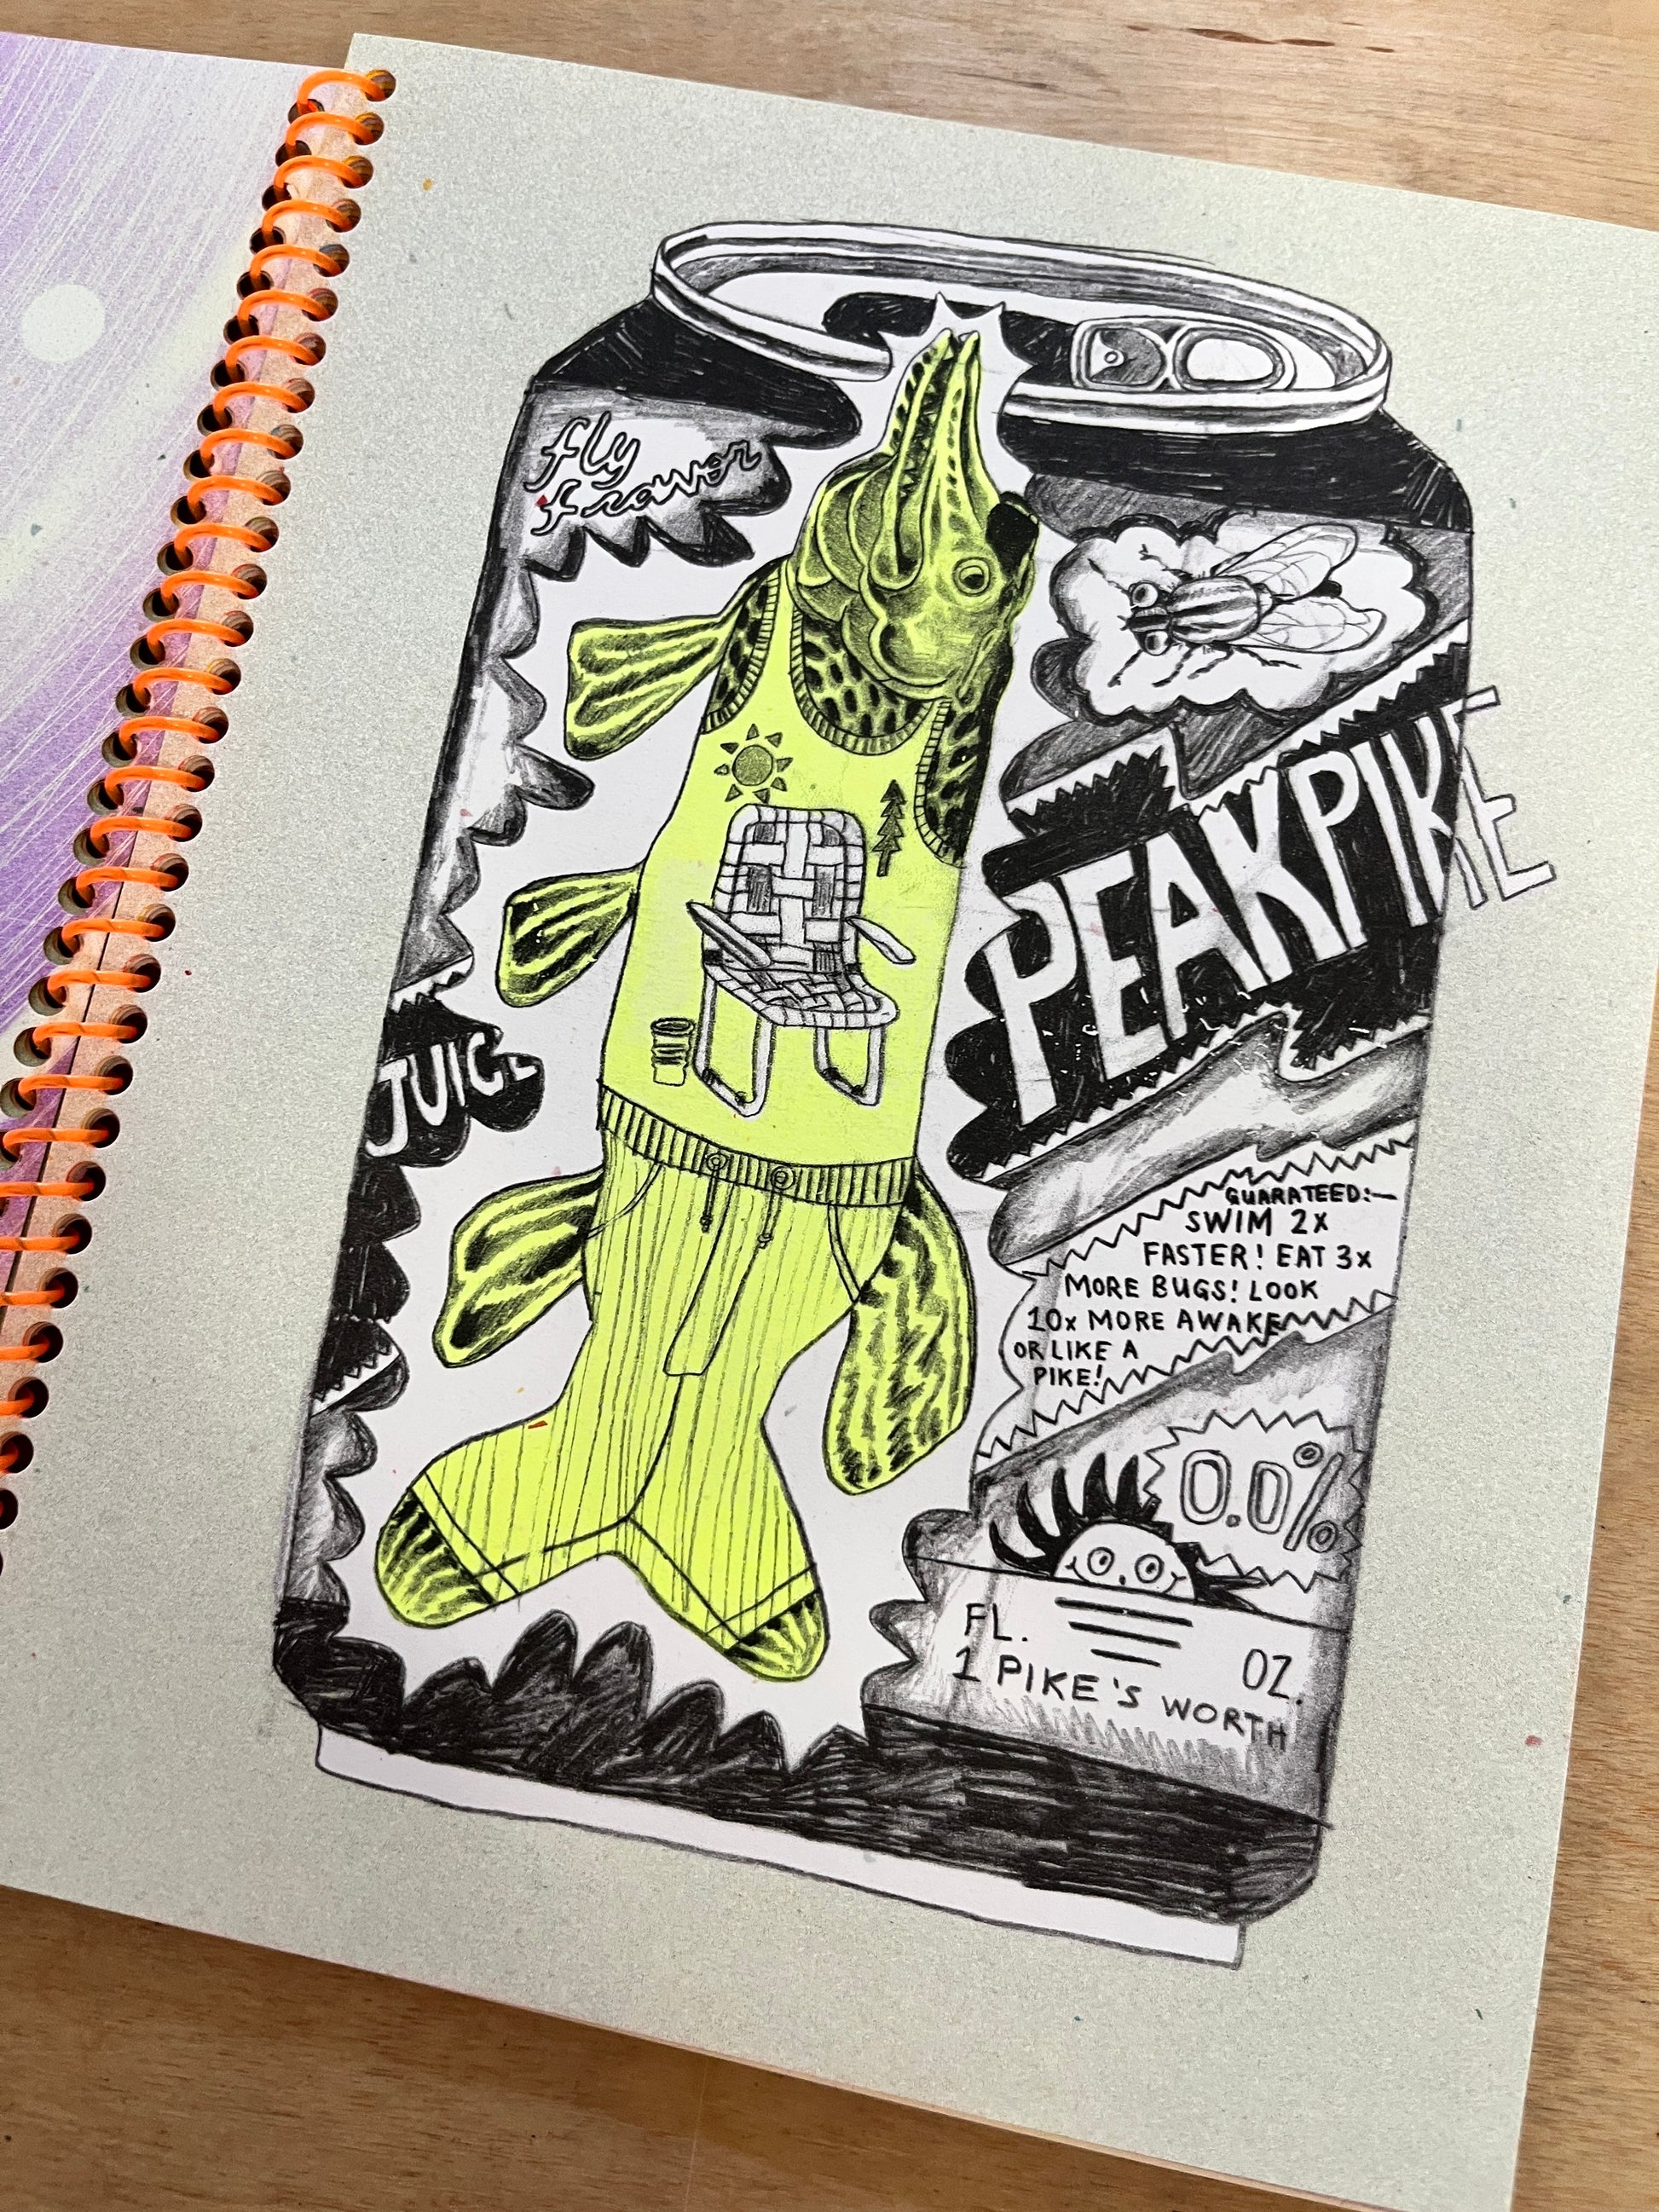 fly
fravor
PEAKPIKE
JUICE
GUARATEED:—
SWIM 2X
FASTER! EAT 3X
MORE BUGS! LOOK
10X MORE AWAKE
OR LIKE A
PIKE!
0.0%
FL. OZ.
1 PIKE'S WORTH